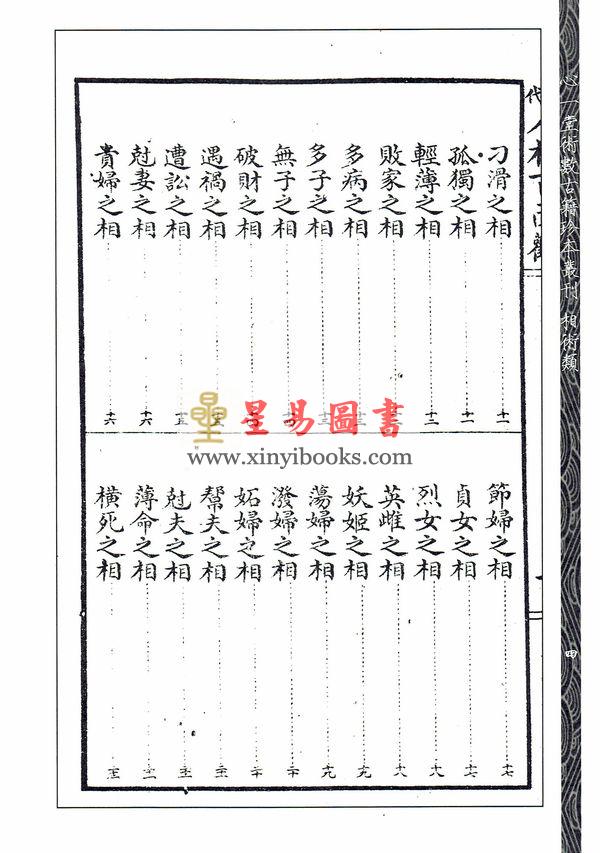 心一堂術數古籍珍本叢刊 相術類
四
刁滑之相 十一
孤獨之相 十一
輕薄之相 十二
敗家之相
多病之相
多子之相
無子之相
破財之相
遇禍之相
遭訟之相 十五
尅妻之相 十六
貴婦之相 十六
節婦之相 十七
貞女之相 十七
烈女之相 十八
英雌之相 十八
妖姬之相 十九
蕩婦之相 十九
潑婦之相 二十
妬婦之相 二十
幫夫之相
尅夫之相
薄命之相
橫死之相
星易圖書
www.xinyibooks.com